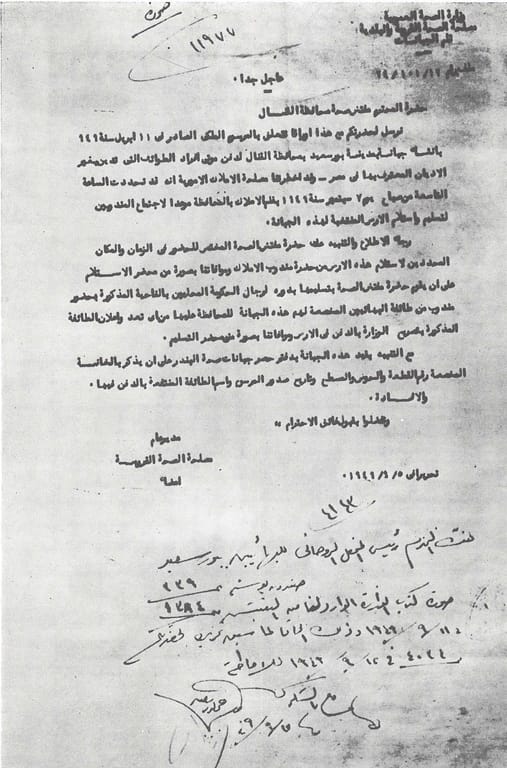 صورة
١١٩٧٧
وزارة الصحة العمومية
مصلحة الصحة القروية
قسم
عاجل جدا ٠
حضرة المحترم مفتش صحة محافظة القنال
نرسل لحضرتكم مع هذا اوراقا تتعلق بالمرسوم الملكى الصادر فى ١١ ابريل سنة ١٩٤٩
بانشاء جبانة بمدينة بورسعيد بمحافظة القنال لدفن موتى أفراد الطوائف التى تدين بغير
الاديان المعترف بها فى مصر ــ وقد اخطرتنا مصلحة الاملاك الاميرية انه قد تحددت الساعة
التاسعة من صباح يوم ٧ سبتمبر سنة ١٩٤٩ بقلم الاملاك بالمحافظة موعدا لاجتماع المندوبين
لتسليم واستلام الارض المخصصة لهذه الجبانة ٠
رجاء الاطلاع والتنبيه على حضرة مفتش الصحة المختص للحضور فى الزمان والمكان
المحددين لاستلام هذه الارض من حضرة مندوب الاملاك وموافاتنا بصورة من محضر الاستلام
على ان يقوم حضرة مفتش الصحة بتسليمها بدوره لرجال الحكومة المحليين بالناحية المذكورة بحضور
مندوب من طائفة البهائيين المخصصة لهم هذه الجبانة للمحافظة عليها من أى تعد واعلان الطائفة
المذكورة بتصريح الوزارة بالدفن فى الارض وموافاتنا بصورة من محضر التسليم ٠
مع التنبيه بقيد هذه الجبانة بدفتر حصر جبانات صحة البندر على ان يذكر بالخانة
المخصصة رقم القطعة والحوض والمسطح وتاريخ صدور المرسوم واسم الطائفة المنتفعة بالدفن فيها ٠
والافادة ٠
وتفضلوا بقبول فائق الاحترام ،،
مدير عام
مصلحة الصحة القروية
امضاء
تحريرا فى ١٩٤٩/٩/٥
٤١٤٣
حضرة المحترم رئيس المحفل الروحانى للبهائيين ببورسعيد
صندوق بوستة ٢٣٩
صورة كتاب الوزارة
١٩٤٩/٩/١١
٤٠٢٤ فى ١٢ / ٩ / ١٩٤٩ للاحاطة